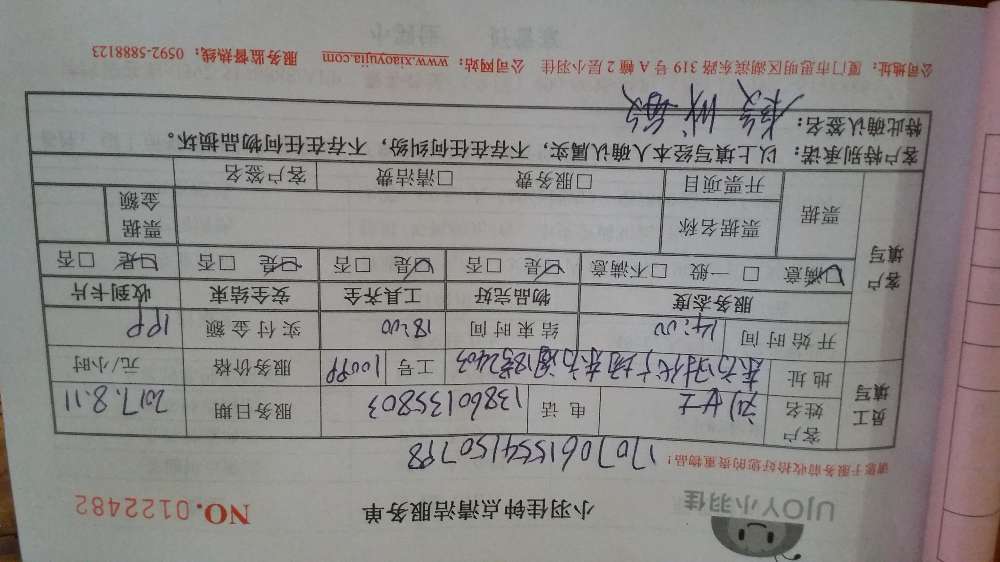 UJOY小羽佳
小羽佳钟点清洁服务单
NO.0122482
请您于服务前收拾好您的贵重物品!
员工填写
客户姓名 刘女士 电话 13860135803 服务日期 2017.8.11
地址 工号 服务价格 元/小时
开始时间 14:00 结束时间 18:00 实付金额
客户填写
服务态度 物品完好 工具齐全 安全结束 收到卡片
☑满意 □一般 □不满意 ☑是 □否 ☑是 □否 ☑是 □否 ☑是 □否
票据 票据名称 票据金额
开票项目 □服务费 □清洁费 客户签名
客户特别承诺:以上填写经本人确认属实,不存在任何纠纷,不存在任何物品损坏。
特此确认签名:
公司地址:厦门市思明区湖滨东路319号A幢2层小羽佳 公司网站:www.xiaoyujia.com 服务监督热线:0592-5888123